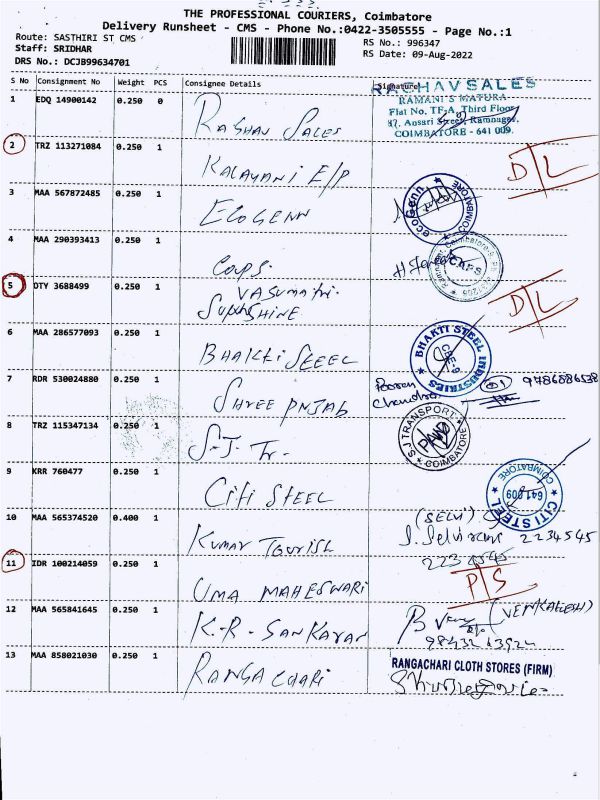 THE PROFESSIONAL COURIERS, Coimbatore
Delivery Runsheet - CMS - Phone No.:0422-3505555 - Page No.:1
Route: SASTHIRI ST CMS
RS No.: 996347
Staff: SRIDHAR
RS Date: 09-Aug-2022
DRS No.: DCJB99634701
S No Consignment No Weight PCS Consignee Details Signature
RAGHAV SALES
RAMANI'S MATURA
Flat No, TF-A, Third Floor
87, Ansari Street, Ramnagar,
COIMBATORE - 641 009.
1 EDQ 14900142 0.250 0 RAGHAV SALES
2 TRZ 113271084 0.250 1 KALAYANI E/P D/L
3 MAA 567872485 0.250 1 ECOGENN ecoGenn COIMBATORE
4 MAA 290393413 0.250 1 Caps. CAPS
5 DTY 3688499 0.250 1 VASUMATHI SUPER SHINE D/L
6 MAA 286577093 0.250 1 BHAKTI STEEL BHAKTI STEEL INDUSTRIES CBE-9
7 RDR 530024880 0.250 1 SHREE PNJAB Chandra 9786886538
8 TRZ 115347134 0.250 1 S-J- Tr- S.J TRANSPORT COIMBATORE
9 KRR 760477 0.250 1 CITI STEEL CITI STEEL 641 009 COIMBATORE
10 MAA 565374520 0.400 1 KUMAR TOURISH (SELVI) S. Selvi 2234545
11 IDR 100214059 0.250 1 UMA MAHESWARI P/S
12 MAA 565841645 0.250 1 K.R. SANKARAN (VENKATESH)
13 MAA 858021030 0.250 1 RANGACHARI RANGACHARI CLOTH STORES (FIRM)